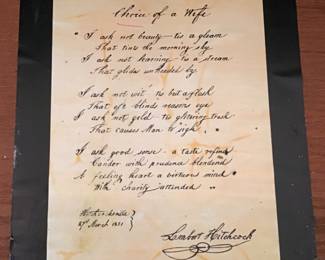 Choice of a Wife
I ask not beauty tis a gleam
That tints the morning sky
I ask not learning tis a stream
That glides unheeded by
I ask not wit tis but a flash
That oft blinds reasons eye
I ask not gold tis glittering trash
That causes Man to sigh
I ask good sense a taste refin'd
Candor with prudence blended
A feeling heart a virtuous mind
With charity attended
27 March 1851
Lambert Hitchcock